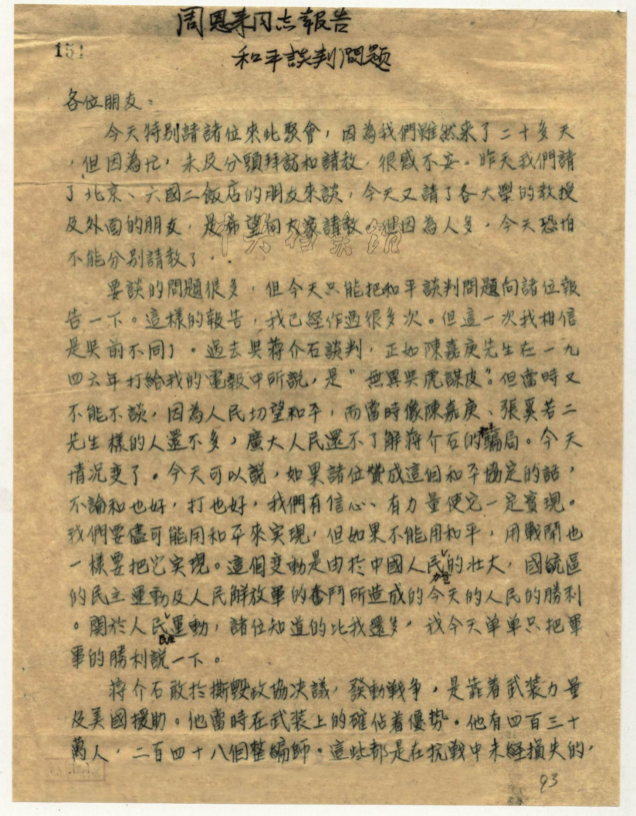 周恩来同志報告
151
和平談判問題
各位朋友：
今天特別請諸位來此聚會，因為我們雖然来了二十多天
，但因為忙，未及分頭拜訪和請教，很感不妥。昨天我們請
了北京、六國二飯店的朋友來談，今天又請了各大學的教授
及外面的朋友，是希望向大家請教。但因為人多，今天恐怕
不能分别請教了。
要談的問題很多，但今天只能把和平談判問題向諸位報
告一下。這樣的報告，我已經作過很多次。但這一次我相信
是與前不同了。過去與蔣介石談判，正如陳嘉庚先生在一九
四六年打給我的電報中所說，是“無異與虎謀皮”。但當時又
不能不談，因為人民切望和平，而當時像陳嘉庚、張奚若二
先生樣的人還不多，廣大人民還不了解蔣介石的騙局。今天
情况变了。今天可以說，如果諸位贊成這個和平協定的話，
不論和也好，打也好，我們有信心、有力量使它一定實現。
我們要儘可能用和平來实現，但如果不能用和平，用戰鬥也
一樣要把它实現。這個变動是由於中國人民力量的壮大，國統區
的民主運動及人民解放軍的奮鬥所造成的今天的人民的勝利
。關於人民運動，諸位知道的比我還多，我今天单单只把軍
事的勝利說一下。
蔣介石敢於撕毀政協决議，發動戰争，是靠着武装力量
及美國援助。他當時在武装上的確佔着優势。他有四百三十
萬人，二百四十八個整編師。這些都是在抗戰中未經損失的，
93